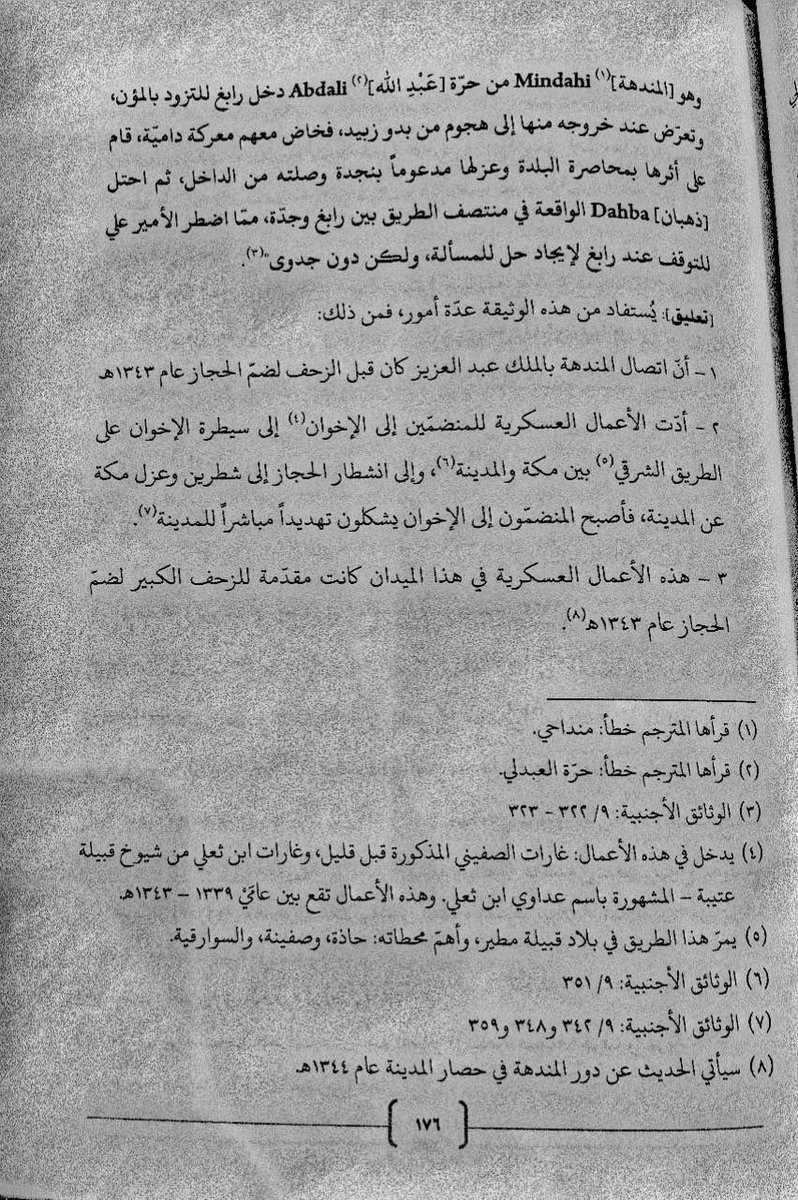 وهو [المندهة](١) Mindahi من حرّة [عَبْدِ الله](٢) Abdali دخل رابغ للتزود بالمؤن،
وتعرّض عند خروجه منها إلى هجوم من بدو زبيد، فخاض معهم معركة داميّة، قام
على أثرها بمحاصرة البلدة وعزلها مدعوماً بنجدة وصلته من الداخل، ثم احتل
[ذهبان] Dahba الواقعة في منتصف الطريق بين رابغ وجدّة، ممّا اضطر الأمير علي
للتوقف عند رابغ لإيجاد حل للمسألة، ولكن دون جدوى"(٣).
[تعليق]: يُستفاد من هذه الوثيقة عدّة أمور، فمن ذلك:
١ - أنّ اتصال المندهة بالملك عبد العزيز كان قبل الزحف لضمّ الحجاز عام ١٣٤٣هـ
٢ - أدّت الأعمال العسكرية للمنضمّين إلى الإخوان(٤) إلى سيطرة الإخوان على
الطريق الشرقي(٥) بين مكة والمدينة(٦)، وإلى انشطار الحجاز إلى شطرين وعزل مكة
عن المدينة، فأصبح المنضمّون إلى الإخوان يشكلون تهديداً مباشراً للمدينة(٧).
٣ - هذه الأعمال العسكرية في هذا الميدان كانت مقدّمة للزحف الكبير لضمّ
الحجاز عام ١٣٤٣هـ(٨).
(١) قرأها المترجم خطأ: منداحي.
(٢) قرأها المترجم خطأ: حرّة العبدلي.
(٣) الوثائق الأجنبية: ٩/ ٣٢٢ - ٣٢٣
(٤) يدخل في هذه الأعمال: غارات الصفيني المذكورة قبل قليل، وغارات ابن ثعلي من شيوخ قبيلة
عتيبة - المشهورة باسم عداوي ابن ثعلي. وهذه الأعمال تقع بين عامَيْ ١٣٣٩ - ١٣٤٣هـ.
(٥) يمرّ هذا الطريق في بلاد قبيلة مطير، وأهمّ محطاته: حاذة، وصفينة، والسوارقية.
(٦) الوثائق الأجنبية: ٩/ ٣٥١
(٧) الوثائق الأجنبية: ٩/ ٣٤٢ و٣٤٨ و٣٥٩
(٨) سيأتي الحديث عن دور المندهة في حصار المدينة عام ١٣٤٤هـ.
١٧٦